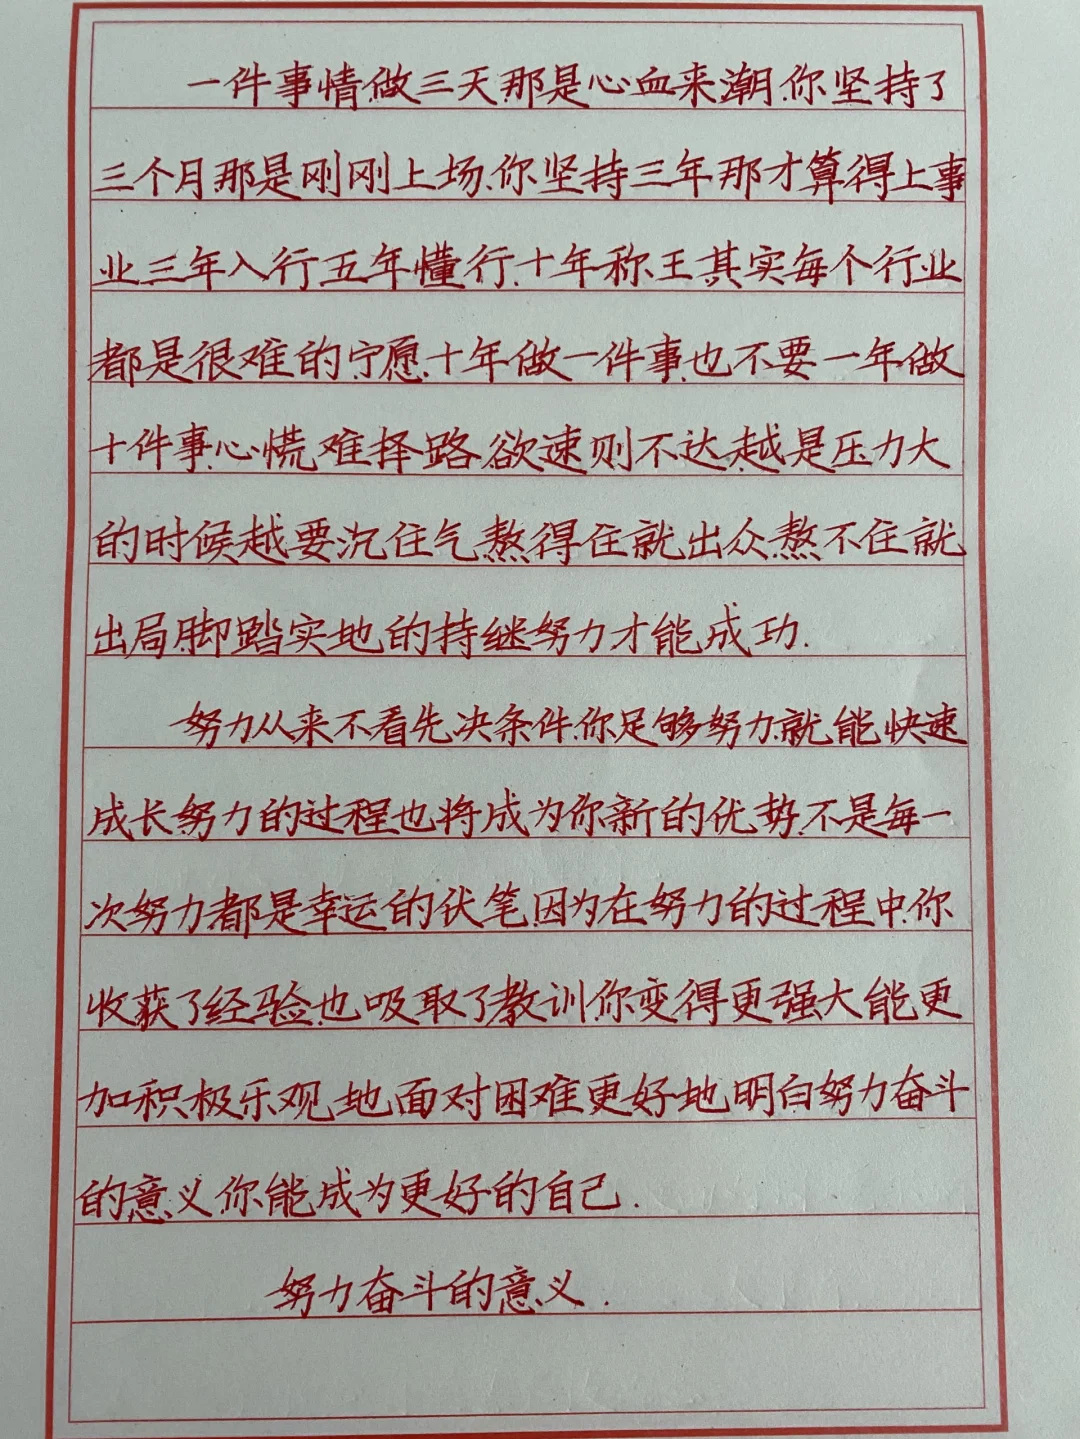 一件事情做三天那是心血来潮.你坚持了
三个月那是刚刚上场.你坚持三年那才算得上事
业三年入行五年懂行十年称王其实每个行业
都是很难的宁愿十年做一件事也不要一年做
十件事心慌难择路欲速则不达越是压力大
的时候越要沉住气熬得住就出众熬不住就
出局脚踏实地的持继努力才能成功.
努力从来不看先决条件你足够努力就能快速
成长努力的过程也将成为你新的优势不是每一
次努力都是幸运的伏笔因为在努力的过程中你
收获了经验也吸取了教训你变得更强大能更
加积极乐观地面对困难更好地明白努力奋斗
的意义你能成为更好的自己.
努力奋斗的意义.